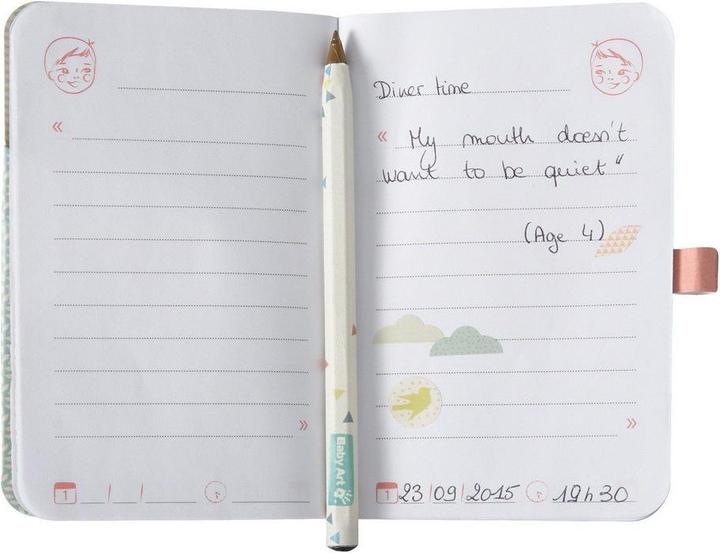 «
»
1
Baby Art
Diner time
« My mouth doesn't
want to be quiet"
(Age 4)
»
1 23/09/2015 19h30